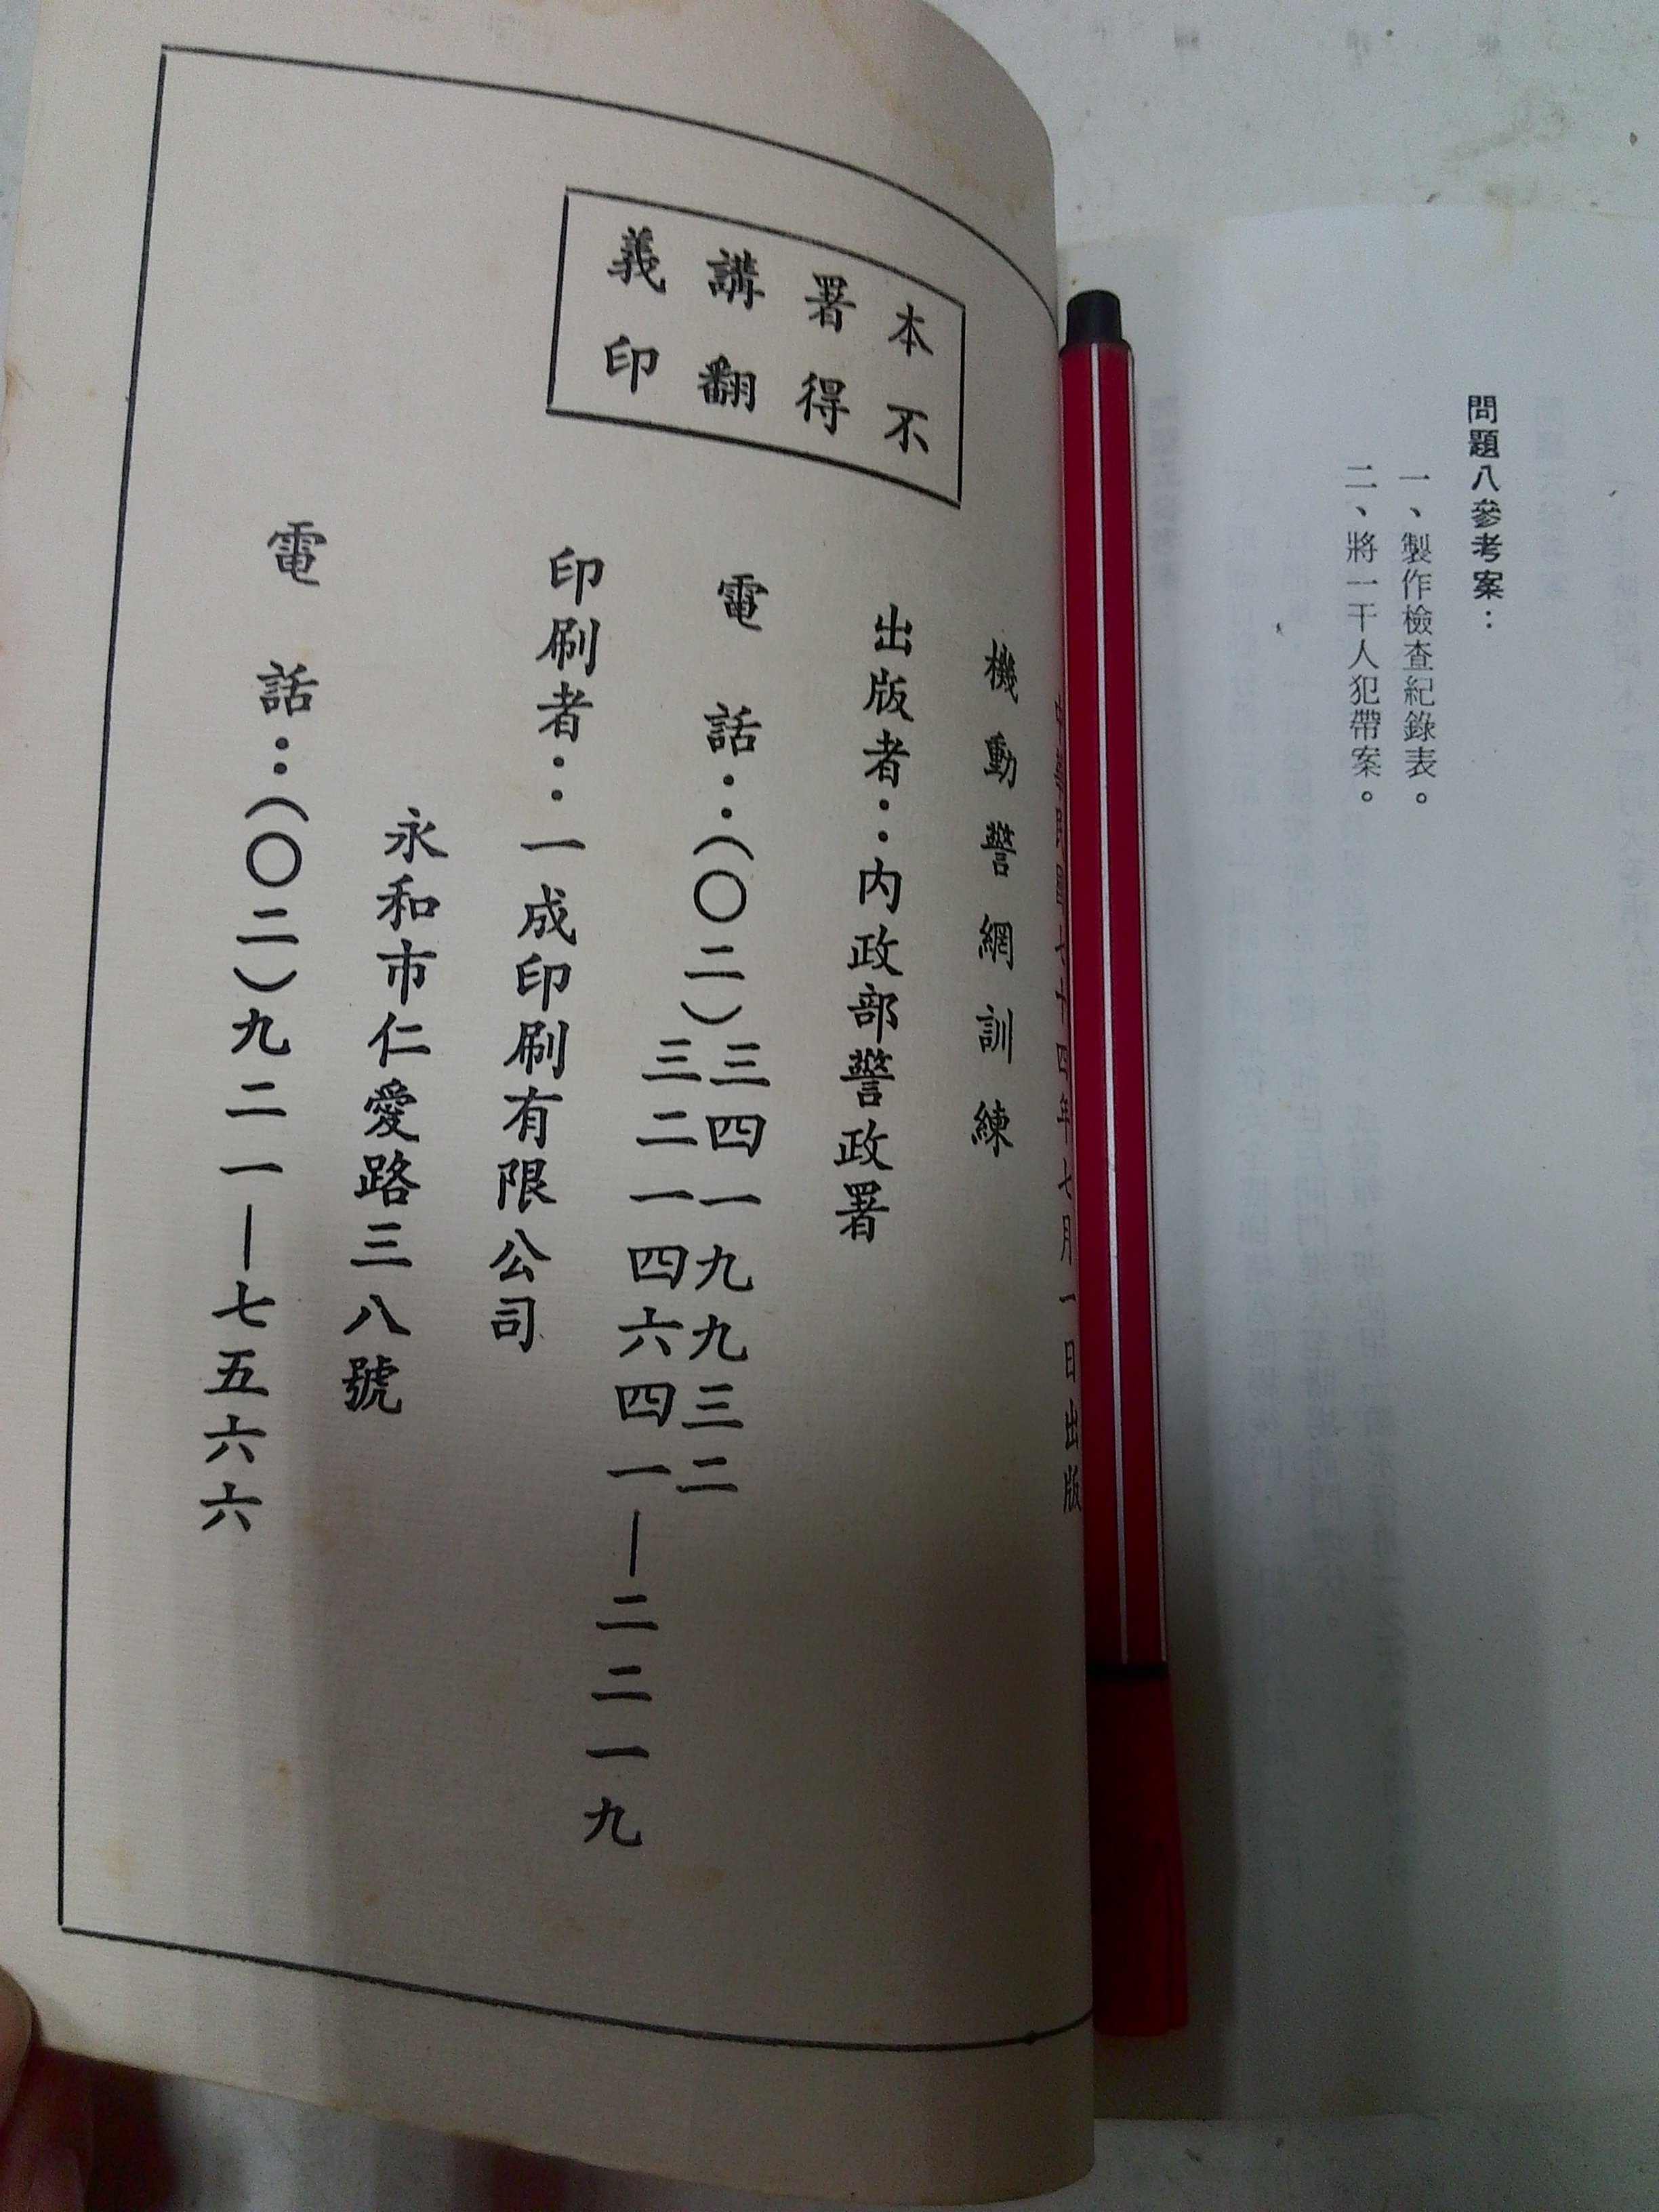 問題八參考案：
一、製作檢查紀錄表。
二、將一干人犯帶案。
六十四年七月一日出版
機動警網訓練
本署講義
不得翻印
出版者：內政部警政署
電話：(〇二)三四一九九三二
三二一四六四一—二二一九
印刷者：一成印刷有限公司
永和市仁愛路三八號
電話：(〇二)九二一—七五六六